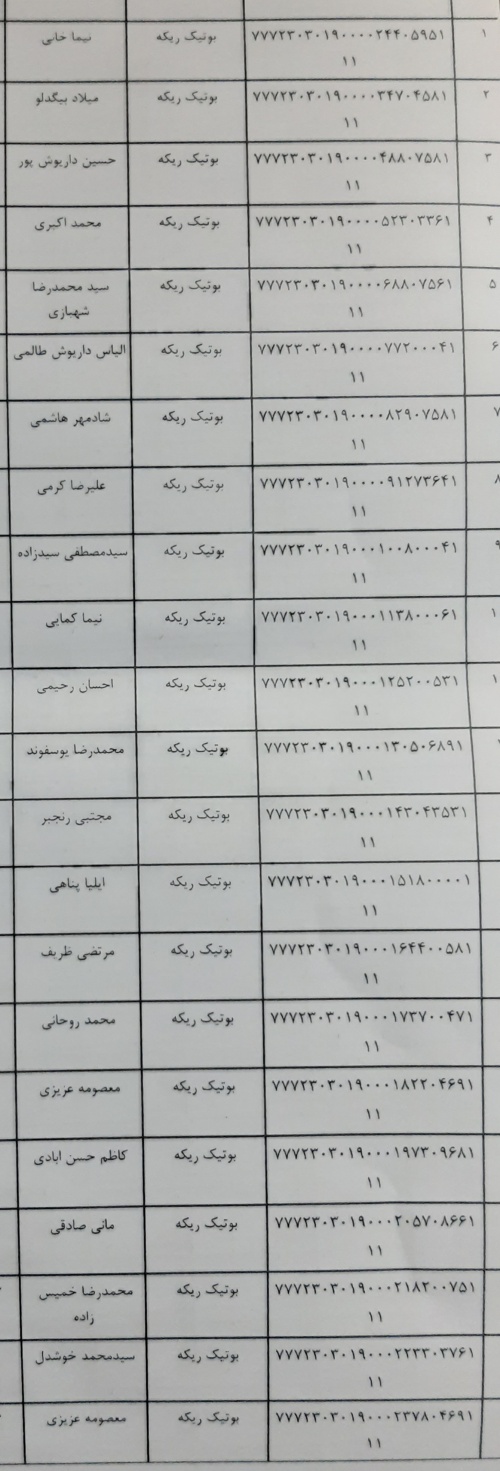 ۱ ۷۷۷۲۳۰۳۰۱۹۰۰۰۰۲۴۴۰۵۹۵۱ بوتیک ریکه نیما خانی
۱۱
۲ ۷۷۷۲۳۰۳۰۱۹۰۰۰۰۳۴۷۰۴۵۸۱ بوتیک ریکه میلاد بیگدلو
۱۱
۳ ۷۷۷۲۳۰۳۰۱۹۰۰۰۰۴۸۸۰۷۵۸۱ بوتیک ریکه حسین داریوش پور
۱۱
۴ ۷۷۷۲۳۰۳۰۱۹۰۰۰۰۵۲۳۰۳۳۶۱ بوتیک ریکه محمد اکبری
۱۱
۵ ۷۷۷۲۳۰۳۰۱۹۰۰۰۰۶۸۸۰۷۵۶۱ بوتیک ریکه سید محمدرضا
۱۱ شهبازی
۶ ۷۷۷۲۳۰۳۰۱۹۰۰۰۰۷۷۲۰۰۰۴۱ بوتیک ریکه الیاس داریوش طالمی
۱۱
۷ ۷۷۷۲۳۰۳۰۱۹۰۰۰۰۸۲۹۰۷۵۸۱ بوتیک ریکه شادمهر هاشمی
۱۱
۸ ۷۷۷۲۳۰۳۰۱۹۰۰۰۰۹۱۲۷۳۶۴۱ بوتیک ریکه علیرضا کرمی
۱۱
۹ ۷۷۷۲۳۰۳۰۱۹۰۰۰۱۰۰۸۰۰۰۴۱ بوتیک ریکه سیدمصطفی سیدزاده
۱۱
۱ ۷۷۷۲۳۰۳۰۱۹۰۰۰۱۱۳۸۰۰۰۶۱ بوتیک ریکه نیما کمایی
۱۱
۱ ۷۷۷۲۳۰۳۰۱۹۰۰۰۱۲۵۲۰۰۵۳۱ بوتیک ریکه احسان رحیمی
۱۱
۷۷۷۲۳۰۳۰۱۹۰۰۰۱۳۰۵۰۶۸۹۱ بوتیک ریکه محمدرضا یوسفوند
۱۱
۷۷۷۲۳۰۳۰۱۹۰۰۰۱۴۳۰۴۳۵۳۱ بوتیک ریکه مجتبی رنجبر
۱۱
۷۷۷۲۳۰۳۰۱۹۰۰۰۱۵۱۸۰۰۰۰۱ بوتیک ریکه ایلیا پناهی
۱۱
۷۷۷۲۳۰۳۰۱۹۰۰۰۱۶۴۴۰۰۵۸۱ بوتیک ریکه مرتضی ظریف
۱۱
۷۷۷۲۳۰۳۰۱۹۰۰۰۱۷۳۷۰۰۴۷۱ بوتیک ریکه محمد روحانی
۱۱
۷۷۷۲۳۰۳۰۱۹۰۰۰۱۸۲۲۰۴۶۹۱ بوتیک ریکه معصومه عزیزی
۱۱
۷۷۷۲۳۰۳۰۱۹۰۰۰۱۹۷۳۰۹۶۸۱ بوتیک ریکه کاظم حسن ابادی
۱۱
۷۷۷۲۳۰۳۰۱۹۰۰۰۲۰۵۷۰۸۶۶۱ بوتیک ریکه مانی صادقی
۱۱
۷۷۷۲۳۰۳۰۱۹۰۰۰۲۱۸۲۰۰۷۵۱ بوتیک ریکه محمدرضا خمیس
۱۱ زاده
۷۷۷۲۳۰۳۰۱۹۰۰۰۲۲۳۳۰۳۷۶۱ بوتیک ریکه سیدمحمد خوشدل
۱۱
۷۷۷۲۳۰۳۰۱۹۰۰۰۲۳۷۸۰۴۶۹۱ بوتیک ریکه معصومه عزیزی
۱۱